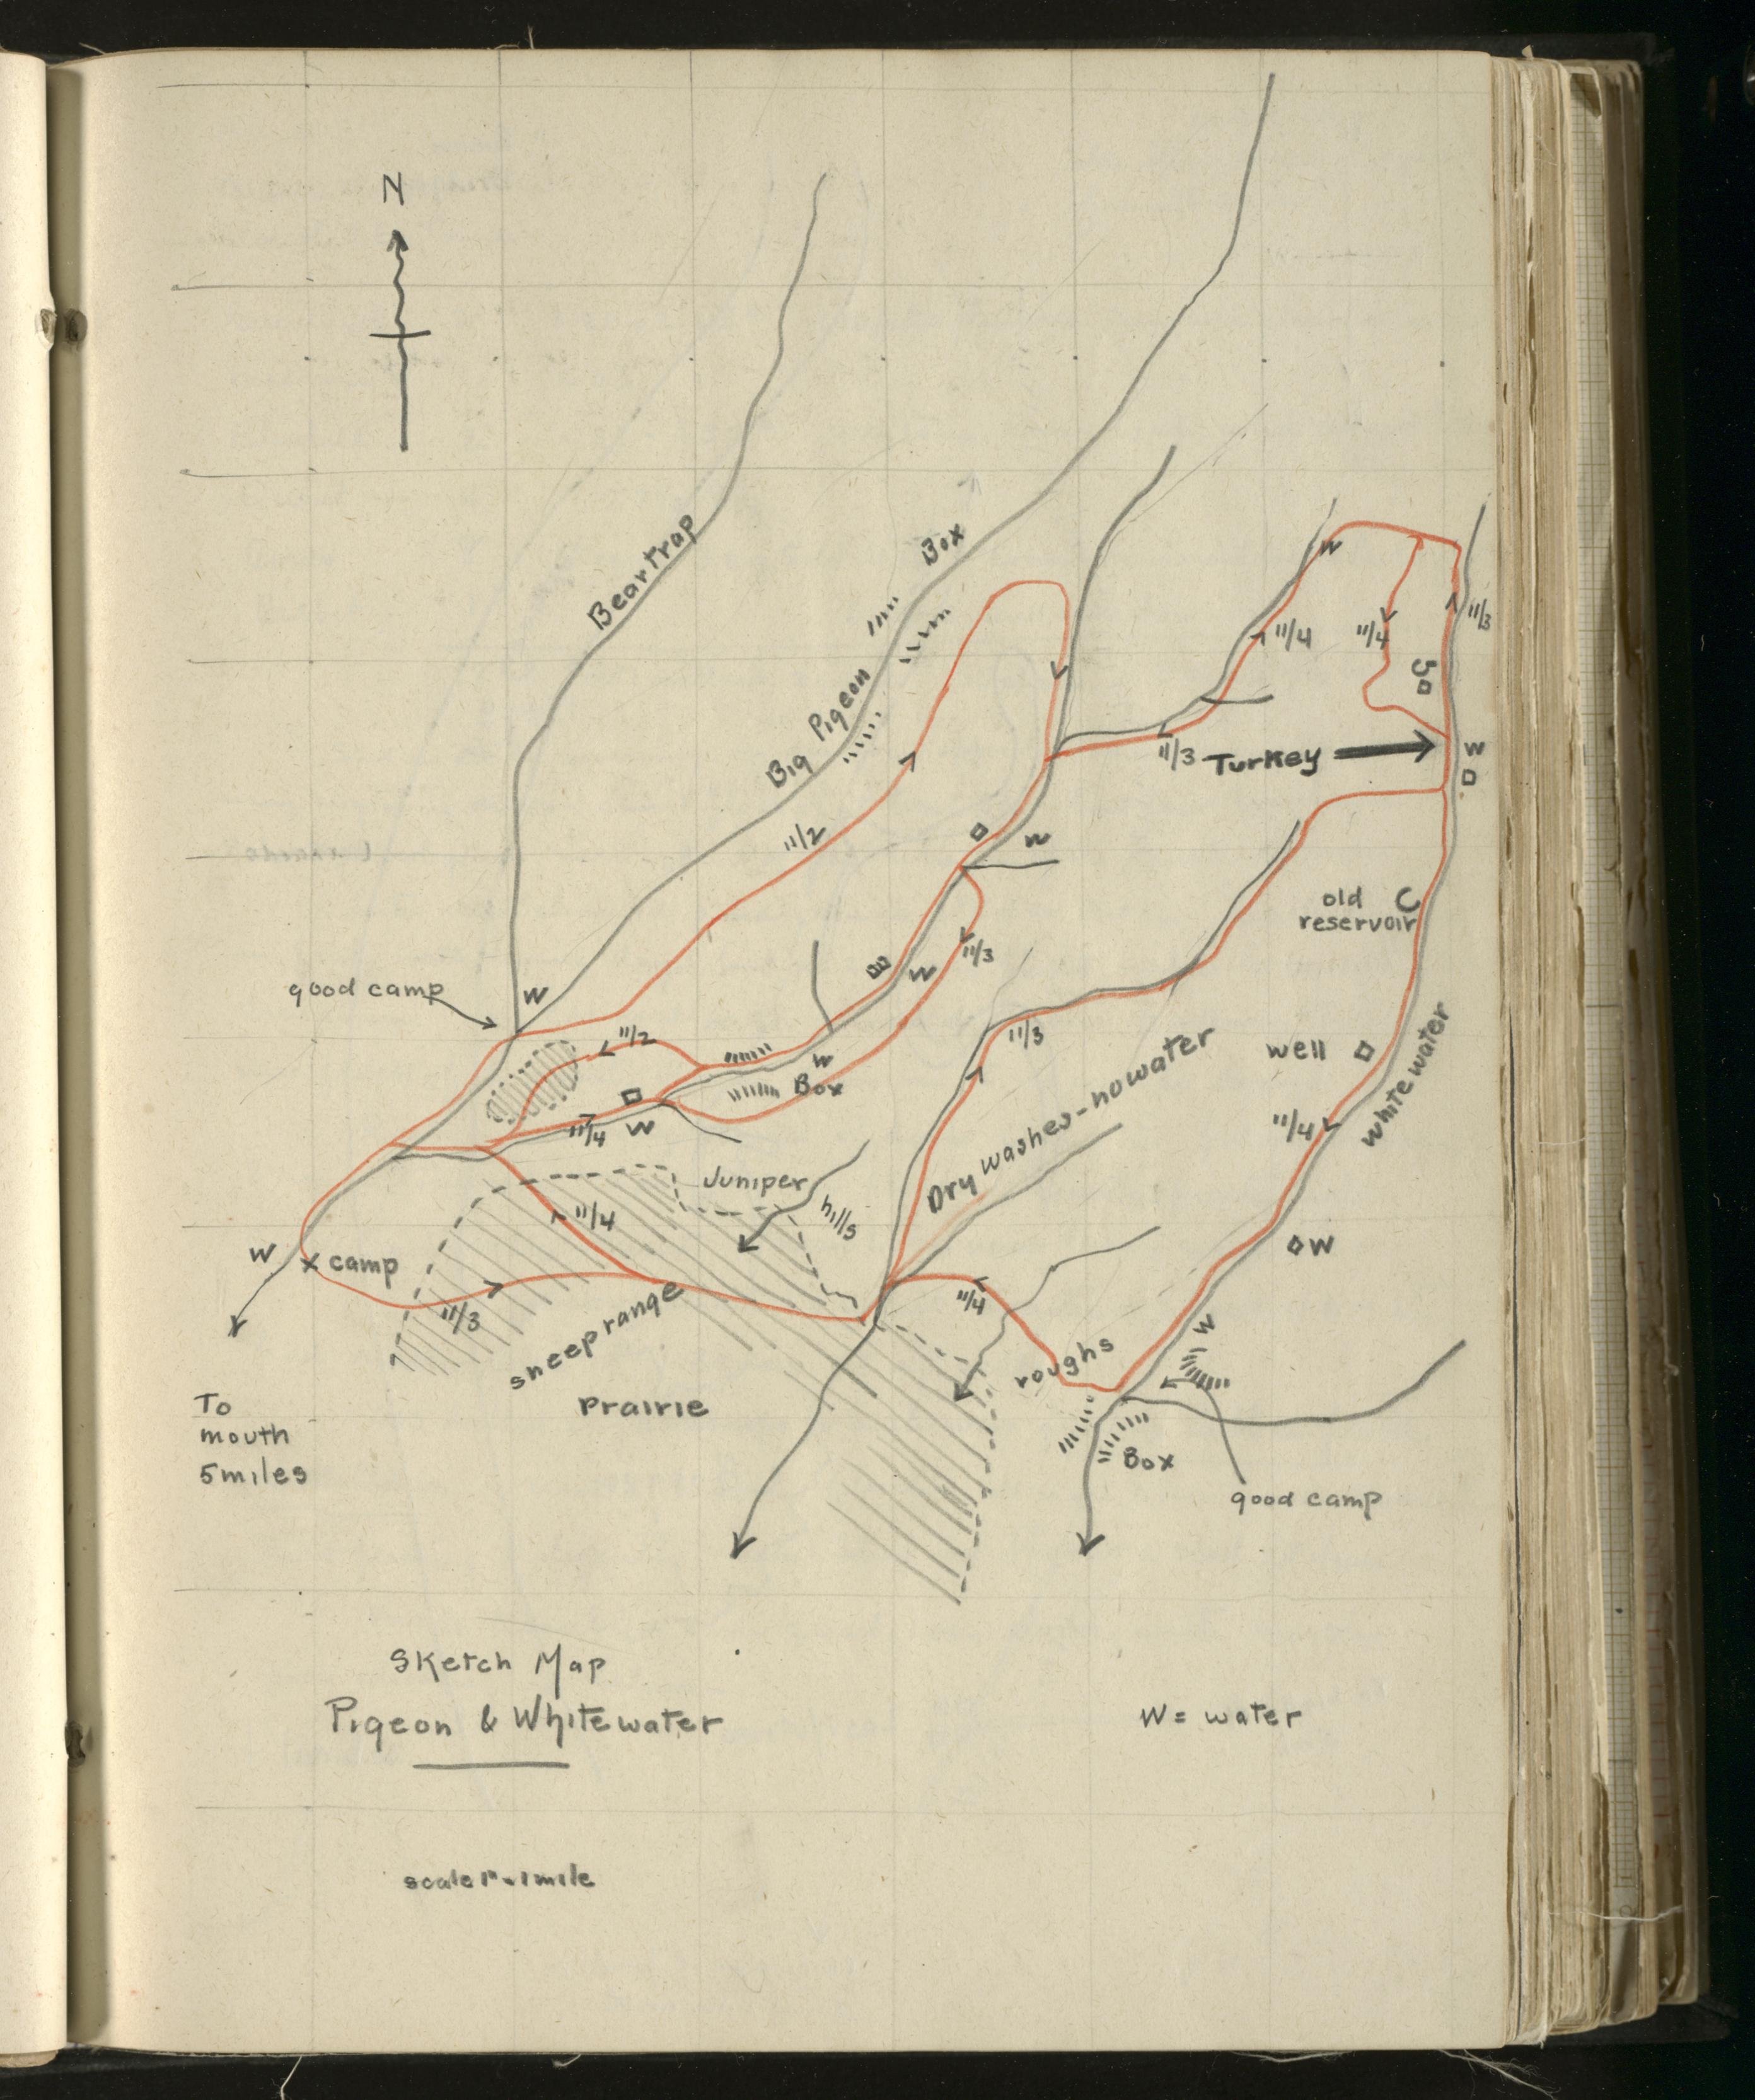 N
Beartrap
Big Pigeon Box
11/3
11/4
11/4
11/3
Turkey
W
W
11/2
W
old
reservoir
C
11/3
W
good camp
W
11/2
11/3
well
Whitewater
W
Box
11/4
W
11/4
Dry washes - no water
Juniper
hills
11/4
W
W
camp
11/3
11/4
W
sheep range
roughs
Prairie
To
mouth
5 miles
Box
good camp
Sketch Map
Pigeon & Whitewater
W = water
scale 1" = 1 mile